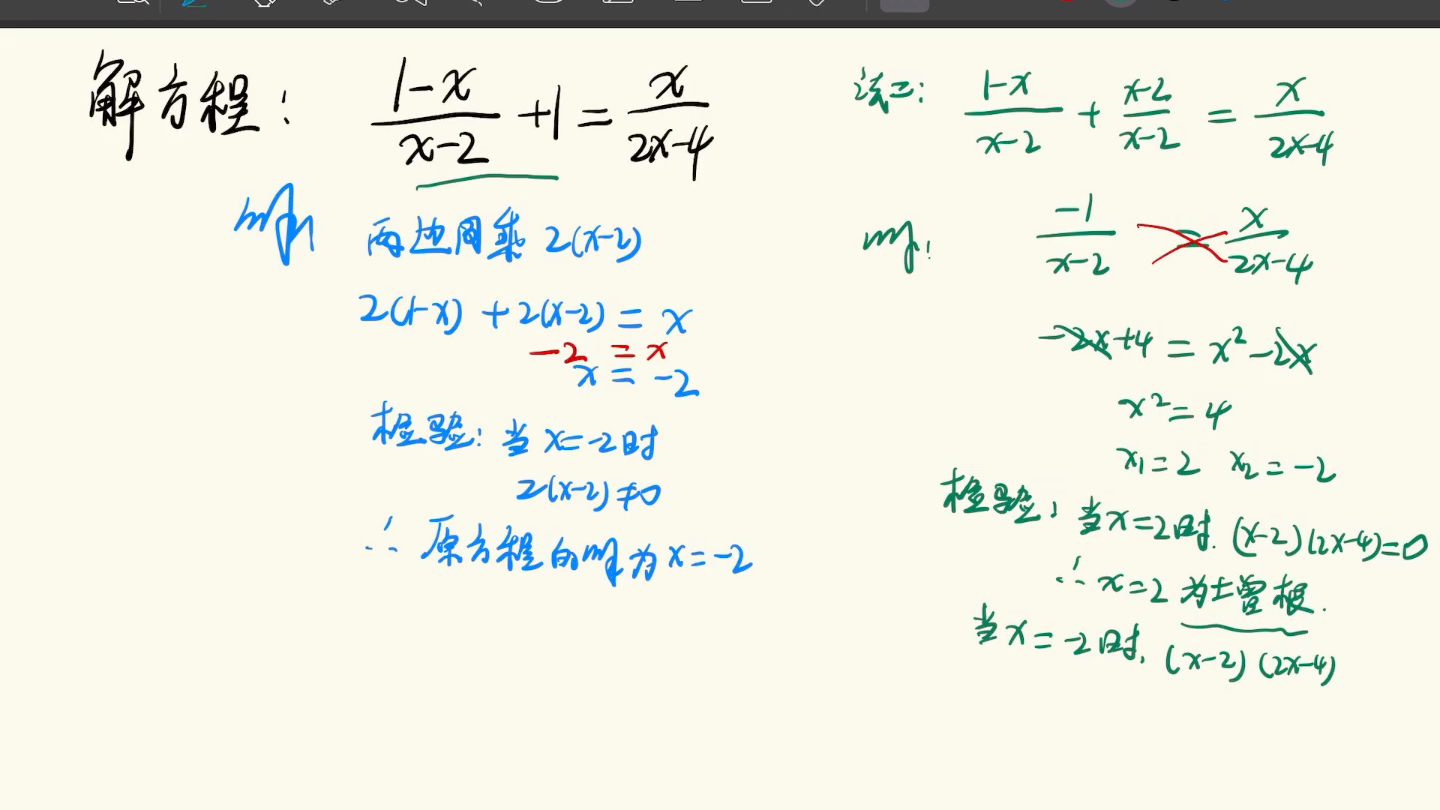 解方程: (1-x)/(x-2) + 1 = x/(2x-4)
解: 两边同乘 2(x-2)
2(1-x) + 2(x-2) = x
-2 = x
x = -2
检验: 当 x=-2时
2(x-2)≠0
∴ 原方程的解为 x=-2
法二: (1-x)/(x-2) + (x-2)/(x-2) = x/(2x-4)
解: -1/(x-2) = x/(2x-4)
-2x+4 = x²-2x
x²=4
x₁=2 x₂=-2
检验: 当x=2时. (x-2)(2x-4)=0
∴ x=2 为增根.
当x=-2时. (x-2)(2x-4)